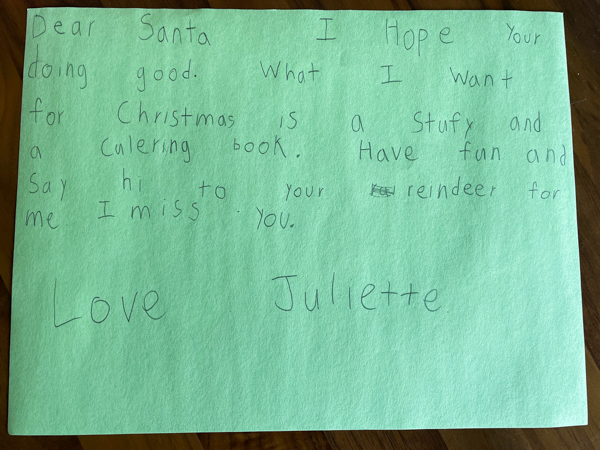 Dear Santa I Hope Your
doing good. What I Want
for Christmas is a Stufy and
a Culering book. Have fun and
Say hi to your reindeer for
me I miss you.
Love Juliette